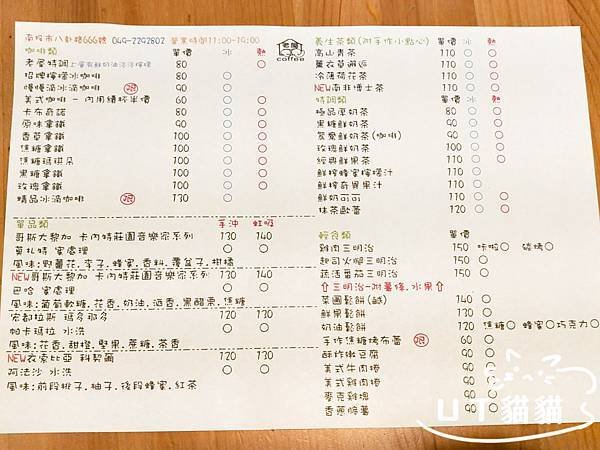 南投市八卦路666號 049-2292802 營業時間11:00-19:00
老屋
coffee
咖啡類 單價 冰 熱
老屋特調 上層有鮮奶油淡淡檸檬 80 ○
招牌檸檬冰咖啡 80 ○
慢慢滴冰滴咖啡 限 90 ○
美式咖啡 - 內用續杯半價 60 ○ ○
卡布奇諾 80 ○ ○
原味拿鐵 90 ○ ○
香草拿鐵 100 ○ ○
焦糖拿鐵 100 ○ ○
焦糖瑪琪朵 100 ○ ○
黑糖拿鐵 100 ○ ○
玫瑰拿鐵 100 ○ ○
精品冰滴咖啡 限 130 ○
單品類 手沖 虹吸
哥斯大黎加 卡內特莊園音樂家系列 130 140
莫札特 蜜處理 ○ ○
風味:野薑花.李子.蜂蜜.香料.覆盆子.柑橘
NEW哥斯大黎加 卡內特莊園音樂家系列 130 140
巴哈 蜜處理 ○ ○
風味:葡萄軟糖.花香.奶油.酒香.黑醋栗.焦糖
宏都拉斯 瑪多那多 120 130
帕卡瑪拉 水洗 ○ ○
風味:花香.甜橙.堅果.蔗糖.茶香
NEW衣索比亞 科契爾 120 130
阿法沙 水洗 ○ ○
風味:前段桃子.柚子.後段蜂蜜.紅茶
養生茶類(附手作小點心) 單價 冰 熱
高山青茶 110 ○ ○
薰衣草邂逅 110 ○ ○
冷薄荷花茶 110 ○ ○
NEW南非博士茶 110 ○ ○
特調類 單價 冰 熱
極品厚奶茶 110 ○ ○
黑糖鮮奶茶 90 ○ ○
鴛鴦鮮奶茶(咖啡) 90 ○ ○
玫瑰鮮奶茶 110 ○ ○
經典鮮果茶 110 ○ ○
鮮榨蜂蜜檸檬汁 110 ○
鮮榨奇異果汁 110 ○
鮮奶可可 110 ○ ○
抹茶歐蕾 120 ○ ○
輕食類 單價
雞肉三明治 150 咔啦○ 碳烤○
起司火腿三明治 150
蔬活番茄三明治 150
⇧三明治-附薯條.水果⇧
菜園鬆餅(鹹) 140 ○
鮮果鬆餅 130 ○
奶油鬆餅 120 焦糖○ 蜂蜜○巧克力○
手作焦糖烤布蕾 限 60 ○
酥炸嫩豆腐 90 ○
美式牛肉捲 90 ○
美式雞肉捲 90 ○
麥克雞塊 90 ○
香蔥脆薯 90 ○
UT貓貓